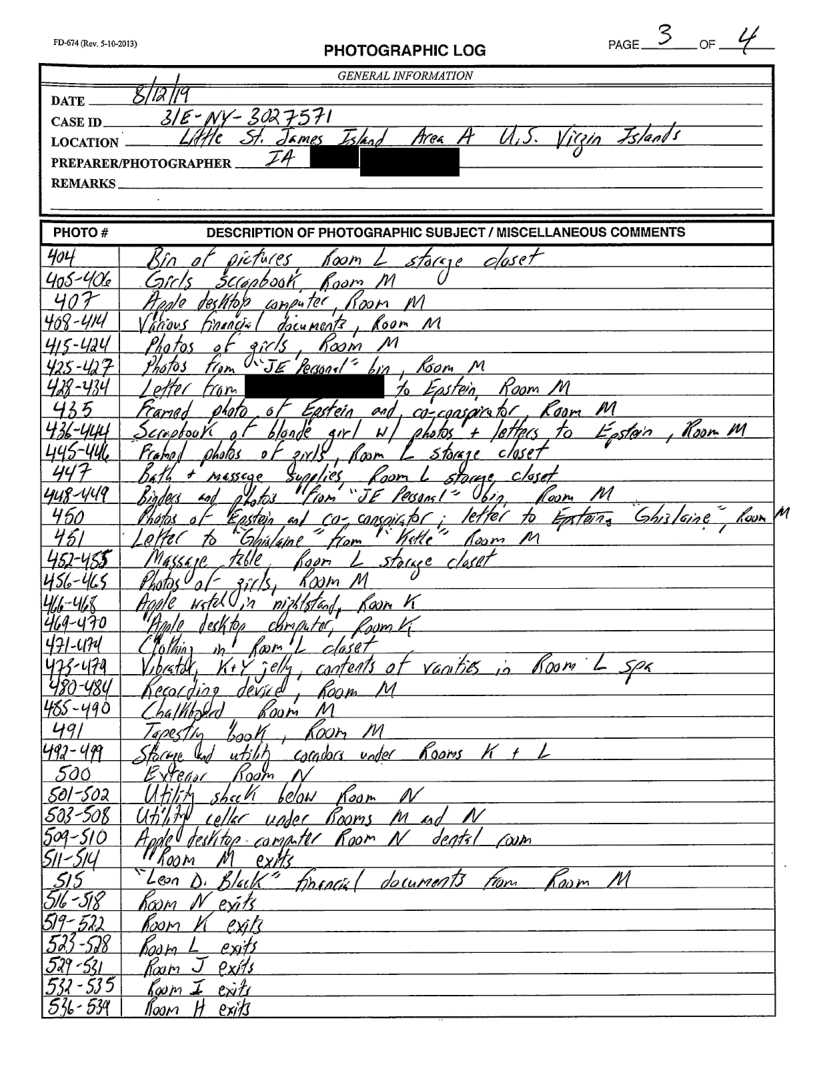 FD-674 (Rev. 5-10-2013)
PHOTOGRAPHIC LOG
PAGE 3 OF 4
GENERAL INFORMATION
DATE 8/12/19
CASE ID 31E-NY-3027571
LOCATION Little St. James Island Area A U.S. Virgin Islands
PREPARER/PHOTOGRAPHER IA
REMARKS
PHOTO # DESCRIPTION OF PHOTOGRAPHIC SUBJECT / MISCELLANEOUS COMMENTS
404 Bin of pictures Room L storage closet
405-406 Girls Scrapbook, Room M
407 Apple desktop computer, Room M
408-414 Various financial documents, Room M
415-424 Photos of girls, Room M
425-427 Photos from "JE Personal" bin, Room M
428-434 Letter from to Epstein, Room M
435 Framed photo of Epstein and co-conspirator, Room M
436-444 Scrapbook of blonde girl w/ photos + letters to Epstein, Room M
445-446 Framed photos of girls, Room L storage closet
447 Bath + massage supplies, Room L storage closet
448-449 Binders and photos from "JE Personal" bin, Room M
450 Photos of Epstein and co-conspirator; letter to Epstein, Ghislaine", Room M
451 Letter to "Ghislaine" from Room M
452-455 Massage table, Room L storage closet
456-465 Photos of girls, Room M
466-468 Apple watch in nightstand, Room K
469-470 Apple desktop computer, Room K
471-474 Clothing in Room L closet
475-479 Vibrator, K+Y jelly, contents of vanities in Room L spa
480-484 Recording device, Room M
485-490 Chalkboard Room M
491 Tapestry book, Room M
492-499 Storage and utility corridors under Rooms K + L
500 Exterior Room N
501-502 Utility shack below Room N
503-508 Utility cellar under Rooms M and N
509-510 Apple desktop computer Room N dental room
511-514 Room M exits
515 "Leon D. Black" financial documents from Room M
516-518 Room N exits
519-522 Room K exits
523-528 Room L exits
529-531 Room J exits
532-535 Room I exits
536-539 Room H exits